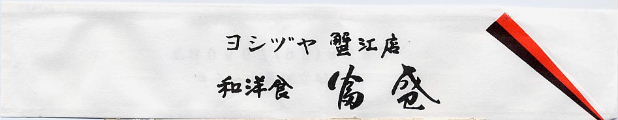 ヨシヅヤ 蟹江店
和洋食 富盛